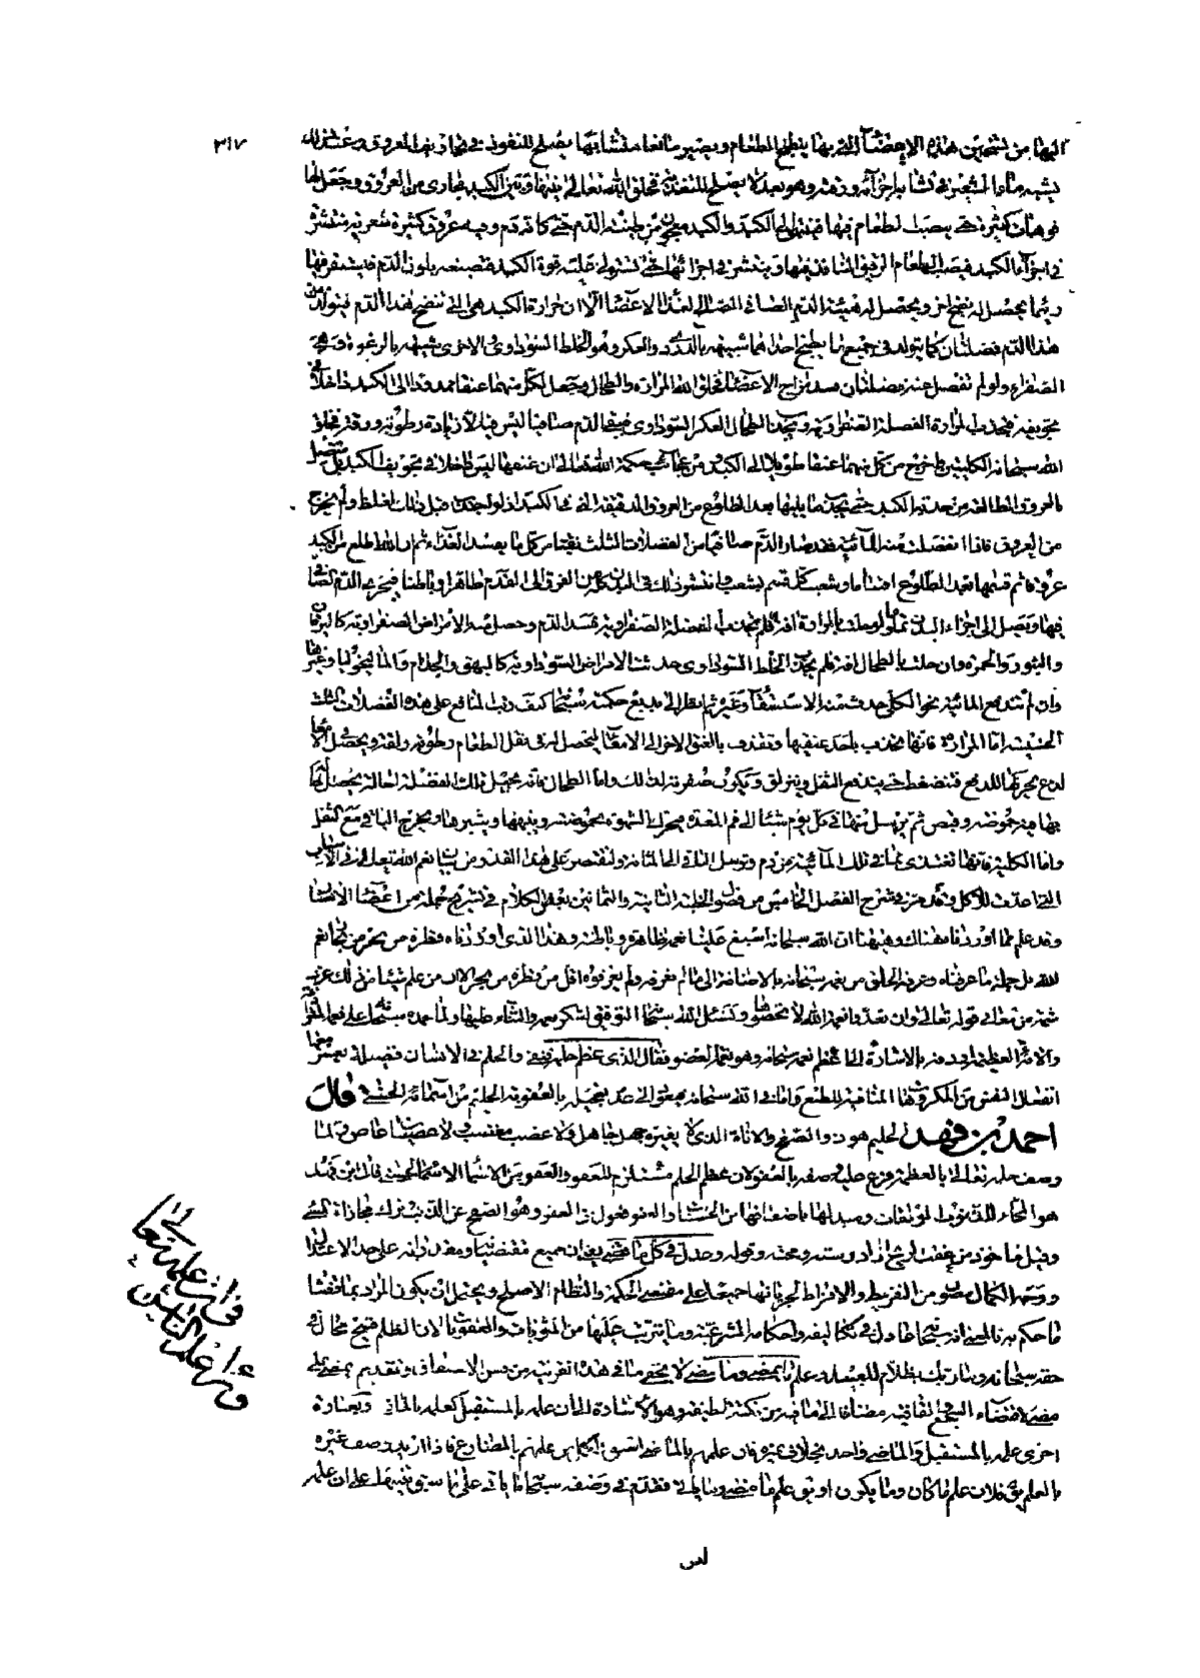 ٣١٧
اليها من تسخين هذه الاعضآء التى بها ينطبخ الطعام ويصير مائعا متشابها يصلح للنفوذ فى تجاويف العروق وعند ذلك
يشبه ماء الشعير فى تشابه اجزائه ورقته وهو بعد لا يصلح للتغذية فخلق الله تعالى بينها وبين الكبد مجارى من العروق وجعل لها
فوهات كثيرة حتى ينصب الطعام فيها فينتهى الى الكبد والكبد معجون من طينة الدم حتى كانه دم وفيه عروق كثيرة شعرية منتشرة
فى اجزآء الكبد فيصب الطعام الرقيق النافذ فيها وينتشر فى اجزائها حتى تستولى عليه قوة الكبد فتصبغه بلون الدم فيستقر فيها
ريثما يحصل له نضج اخر ويحصل له هيئة الدم الصافى الصالح لغذاء الاعضآء الا ان حرارة الكبد هى التى تنضج هذا الدم فيتولد من
هذا الدم فضلتان كما يتولد فى جميع ما يطبخ احداهما شبيهة بالدردى والعكر وهو الخلط السوداوى والاخرى شبيهة بالرغوة وهى
الصفراء ولو لم تفصل عنه الفضلتان فسد مزاج الاعضآء فخلق الله المرارة والطحال وجعل لكل منهما عنقا ممدودا الى الكبد داخلا فى
تجويفه فتجذب المرارة الفضلة الصفراوية ويجذب الطحال العكر السوداوى فيبقى الدم صافيا ليس فيه الا زيادة رطوبة ورقة فخلق
الله سبحانه الكليتين واخرج من كل منهما عنقا طويلا الى الكبد ومن عجائب حكمة الله تعالى ان عنقها ليس داخلا فى تجويف الكبد بل متصل
بالعروق الطالعة من حدبة الكبد حتى يجذب ما يليها بعد الطلوع من العروق الدقيقة التى فى الكبد اذ لو اجتذب قبل ذلك لغلظ ولم يخرج
من العروق فاذا انفصلت منه المائية فقد صار الدم صافيا من الفضلات الثلث نقيا من كل ما يفسد الغذاء ثم ان الله اطلع من الكبد
عروقا ثم قسمها بعد الطلوع اقساما وشعب كل قسم بشعب وانتشر ذلك فى البدن كله من الفرق الى القدم ظاهرا وباطنا فيجرى الدم الصافى
فيها ويصل الى اجزاء البدن ولو حلت بالمرارة افة فلم تجذب الفضلة الصفراوية فسد الدم وحصل منه الامراض الصفراوية كاليرقان
والبثور والحمرة وان حلت بالطحال افة فلم يجذب الخلط السوداوى حدثت الامراض السوداوية كالبهق والجذام والماليخوليا وغيرها
وان لم تندفع المائية نحو الكلى حدث منه الاستسقآء وغيره ثم انظر الى بديع حكمته سبحانه كيف رتب المنافع على هذه الفضلات الثلث
الخسيسة اما المرارة فانها تجذب باحد عنقيها وتقذف بالعنق الاخر الى الامعآء ليحصل له فى ثقل الطعام رطوبة مزلقة ويحصل فى الامعا
لذع يحركها للدفع فتنضغط حتى يندفع الثفل وينزلق وتكون صفرته لذلك واما الطحال فانه يحيل تلك الفضلة احالة يحصل له
بها فيه حموضة وقبض ثم يرسل منها فى كل يوم شيئا الى فم المعدة فيحرك الشهوة بحموضته وينبهها ويثيرها ويخرج الباقى مع الثفل
واما الكلية فانها تغتذى بما فى تلك المائية من دم وترسل الباقى الى المثانة ولنقتصر على هذا القدر من بيان نعم الله تعالى فى الاسباب
التى اعدت للاكل وقد مر فى شرح الفصل الخامس من فصول الخطبة الثانية والثمانين بعض الكلام فى تشريح جملة من اعضآء الانسان
وقد علم مما اوردناه هناك وهيهنا ان الله سبحانه اسبغ علينا نعمه ظاهرة وباطنة وهذا الذى اوردناه قطرة من بحر من بحار نعم
الله بل جملة ما عرفناه وعرفه الخلق من نعمه سبحانه بالاضافة الى ما لم نعرفه ولم يعرفوه اقل من قطرة من بحر الا ان من علم شيئا من ذلك عرف
شمة من معانى قوله تعالى وان تعدوا نعمة الله لا تحصوها ونسئل الله سبحانه التوفيق لشكر نعمه والثناء عليها ولما حمده سبحانه على نعمه
والائه العظيمة اردفه بالاشارة الى اعظم نعمه سبحانه وهو نعمة العفو فقال الذى عظم حلمه فعفى والحلم فى الانسان فضيلة يعسر معها
انفعال النفس من المكروهات المنافية للطبع واما فى الله سبحانه فيعود الى عدم تعجيله بالعقوبة الحليم من اسمائه الحسنى قال
احمد بن فهد الحليم هو ذو الصفح والاناة الذى لا يغيره جهل جاهل ولا غضب مغضب ولا عصيان عاص ولما
وصف حلمه تعالى بالعظمة فرع عليه وصفه بالعفو لان عظم الحلم مستلزم للعفو والعفو من الاسماء الحسنى قال ابن فهد
هو المحآء للذنوب الموبقات ومبدلها باضعافها من الحسنات والعفو فعول من العفو وهو الصفح عن الذنب وترك مجازاة المسئ
وقيل ماخوذ من عفت الريح اذا درسته ومحته وقوله وعدل فى كل ما قضى يعنى ان جميع مقتضياته ومقدراته على حد الاعتدال
ووجه الكمال مصون من التفريط والافراط لجريانها جميعا على مقتضى الحكمة والنظام الاصلح ويحتمل ان يكون المراد بما قضا
ما حكم به فالمعنى انه سبحانه عادل فى تكاليفه واحكامه الشرعية وما يترتب عليها من المثوبات والعقوبات لان الظلم قبيح محال فى
حقه سبحانه وما ربك بظلام للعبيد وعلم ما يمضى وما مضى لا يخفى ما فى هذه القرينة من حسن الاشتقاق وتقديم يمضى على
مضى لاقتضاء السجع والقافية مضافا الى ما فيه من نكتة لطيفة وهو الاشارة الى ان علمه بالمستقبل كعلمه بالماضى وبعبارة
اخرى علمه بالمستقبل والماضى واحد بخلاف غيره فان علمهم بالماضى اسبق من علمهم بالمضارع فاذا اريد وصف غيره
بالعلم يقال فلان علم ما كان وما يكون او يق علم ما مضى وما ياتى فقدم فى وصفه سبحانه ما ياتى على ما سبق تنبيها على ان علمه
ليس
فى ان علمه تعالى